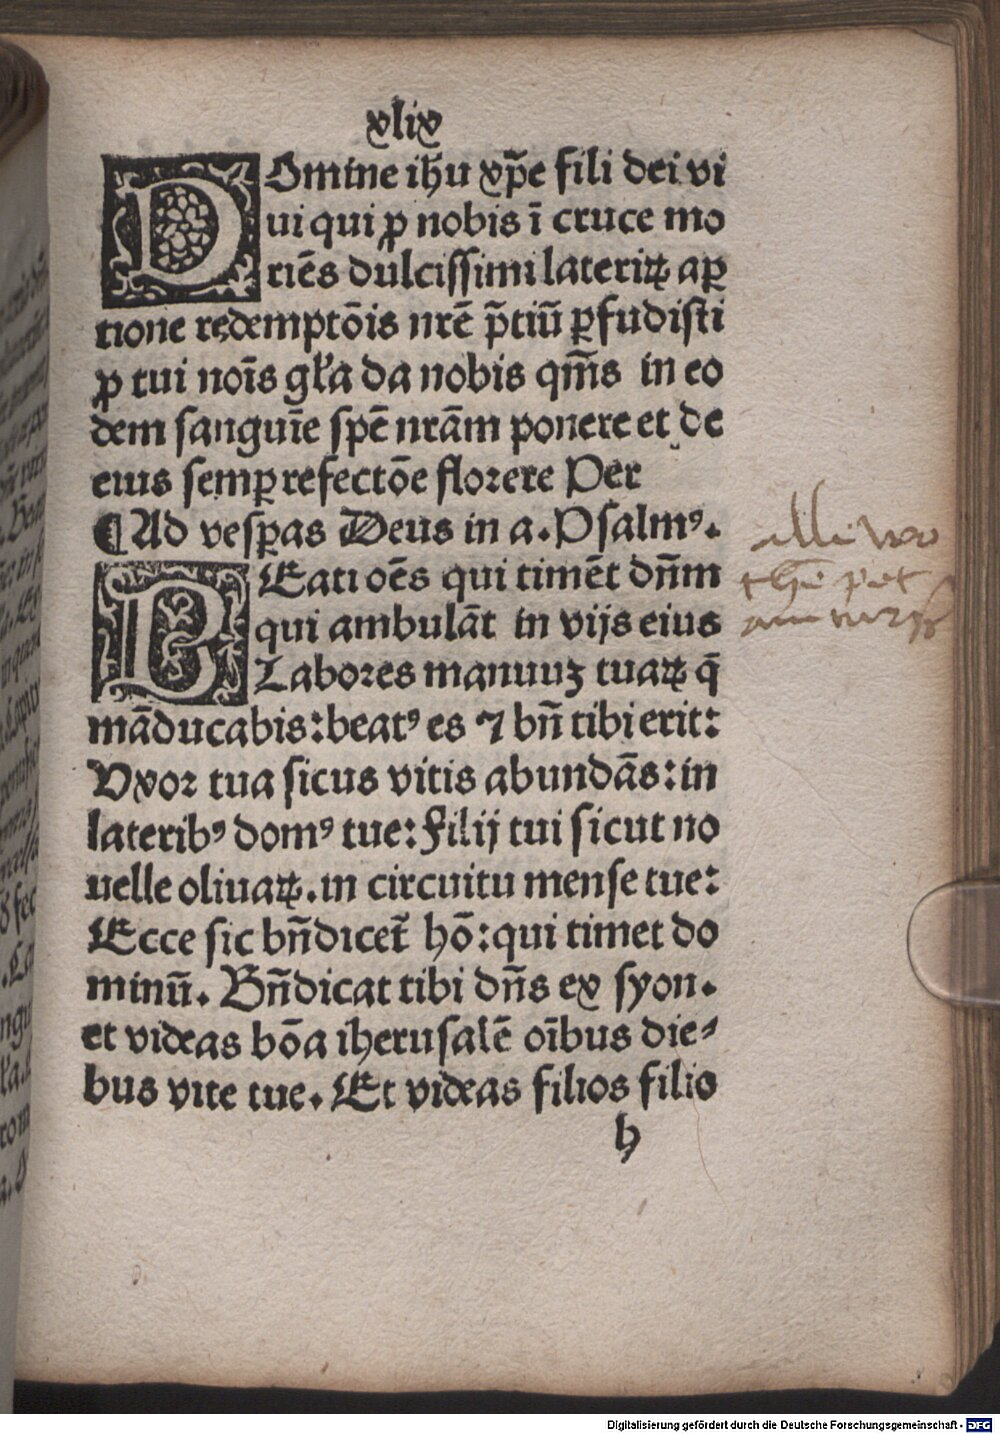 xlix
DOmine ihu xp̄e fili dei vi
ui qui ꝓ nobis ī cruce mo
riēs dulcissimi lateriꝝ aꝑ
tione redemptōis nrē p̄tiū ꝑfudisti
ꝓ tui noīs gła da nobis qm̄s in eo
dem sanguīe spē nrām ponere et de
eius semꝑ refectōe floꝛere Per
¶Ad vesꝑas Deus in a. Psalmꝰ.
BEati oēs qui timēt dn̄m
qui ambulāt in vijs eius
Laboꝛes manuuꝫ tuaꝝ q̄
māducabis: beatꝰ es ⁊ bn̄ tibi erit:
Vxoꝛ tua sicus vitis abundās: in
lateribꝰ domꝰ tue: Filij tui sicut no
uelle oliuaꝝ. in circuitu mense tue:
Ecce sic bn̄dicet̄ hō: qui timet do
minū. Bn̄dicat tibi dn̄s ex syon.
et videas bōa iherusalē oībus die⸗
bus vite tue. Et videas filios filio
h
Digitalisierung gefördert durch die Deutsche Forschungsgemeinschaft - DFG